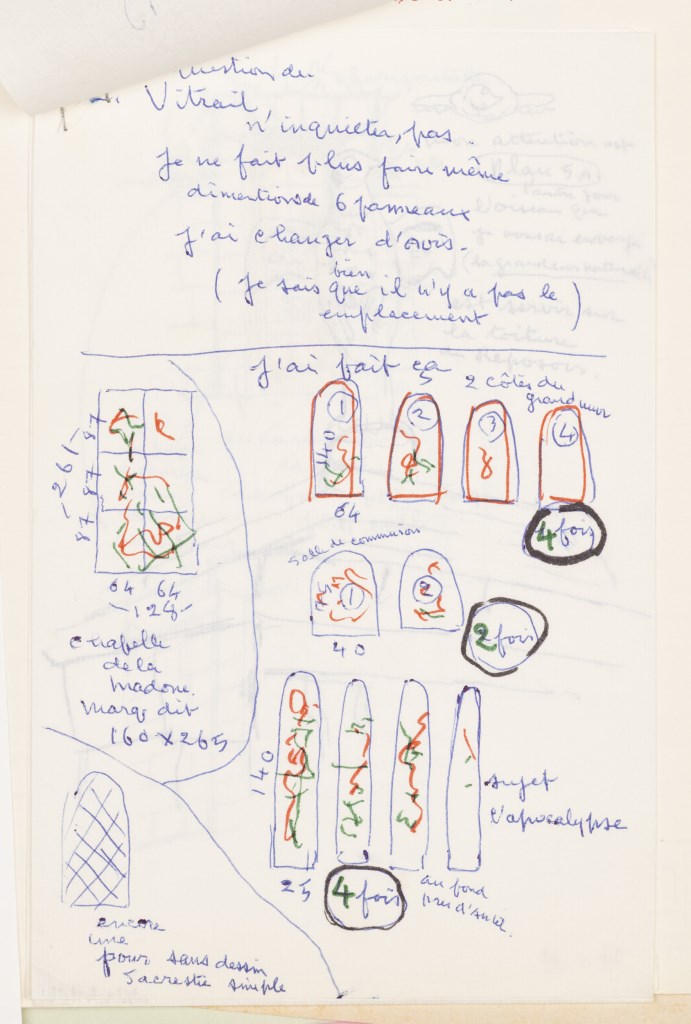 question du
Vitrail,
n'inquieter, pas.
Je ne fait plus faire même
dimentions de 6 panneaux
J'ai changer d'avis.
bien
(Je sais que il n'y a pas le
emplacement)
J'ai fait ça
2 côtés du
grand mur
87
87
87
-261-
64 64
-128-
chapelle
de la
madone.
Marq dit
160 x 265
1
2
3
4
140
64
4 fois
Salle de communion
1
2
40
2 fois
140
25
4 fois
sujet
l'apocalypse
au fond
pres d'autel.
encore
une
pour sans dessin
Sacrestie simple